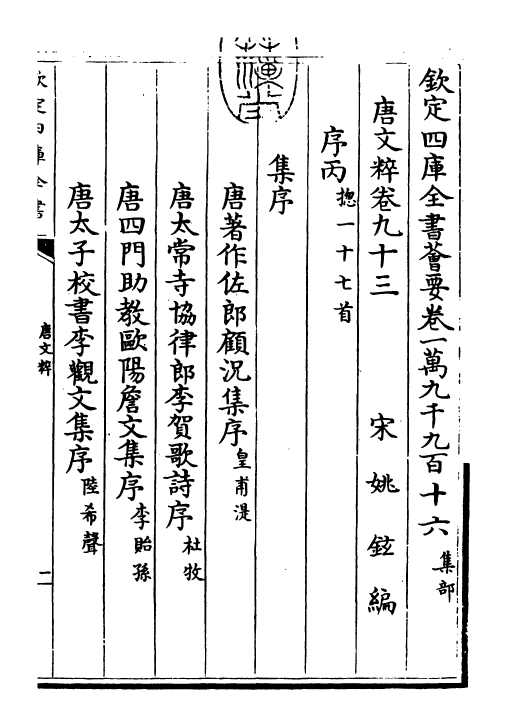 欽定四庫全書薈要卷一萬九千九百十六 集部
唐文粹卷九十三 宋 姚鉉編
序丙 揔一十七首
集序
唐著作佐郎顧況集序 皇甫湜
唐太常寺協律郎李賀歌詩序 杜牧
唐四門助教歐陽詹文集序 李貽孫
唐太子校書李觀文集序 陸希聲
欽定四庫全書
唐文粹
二